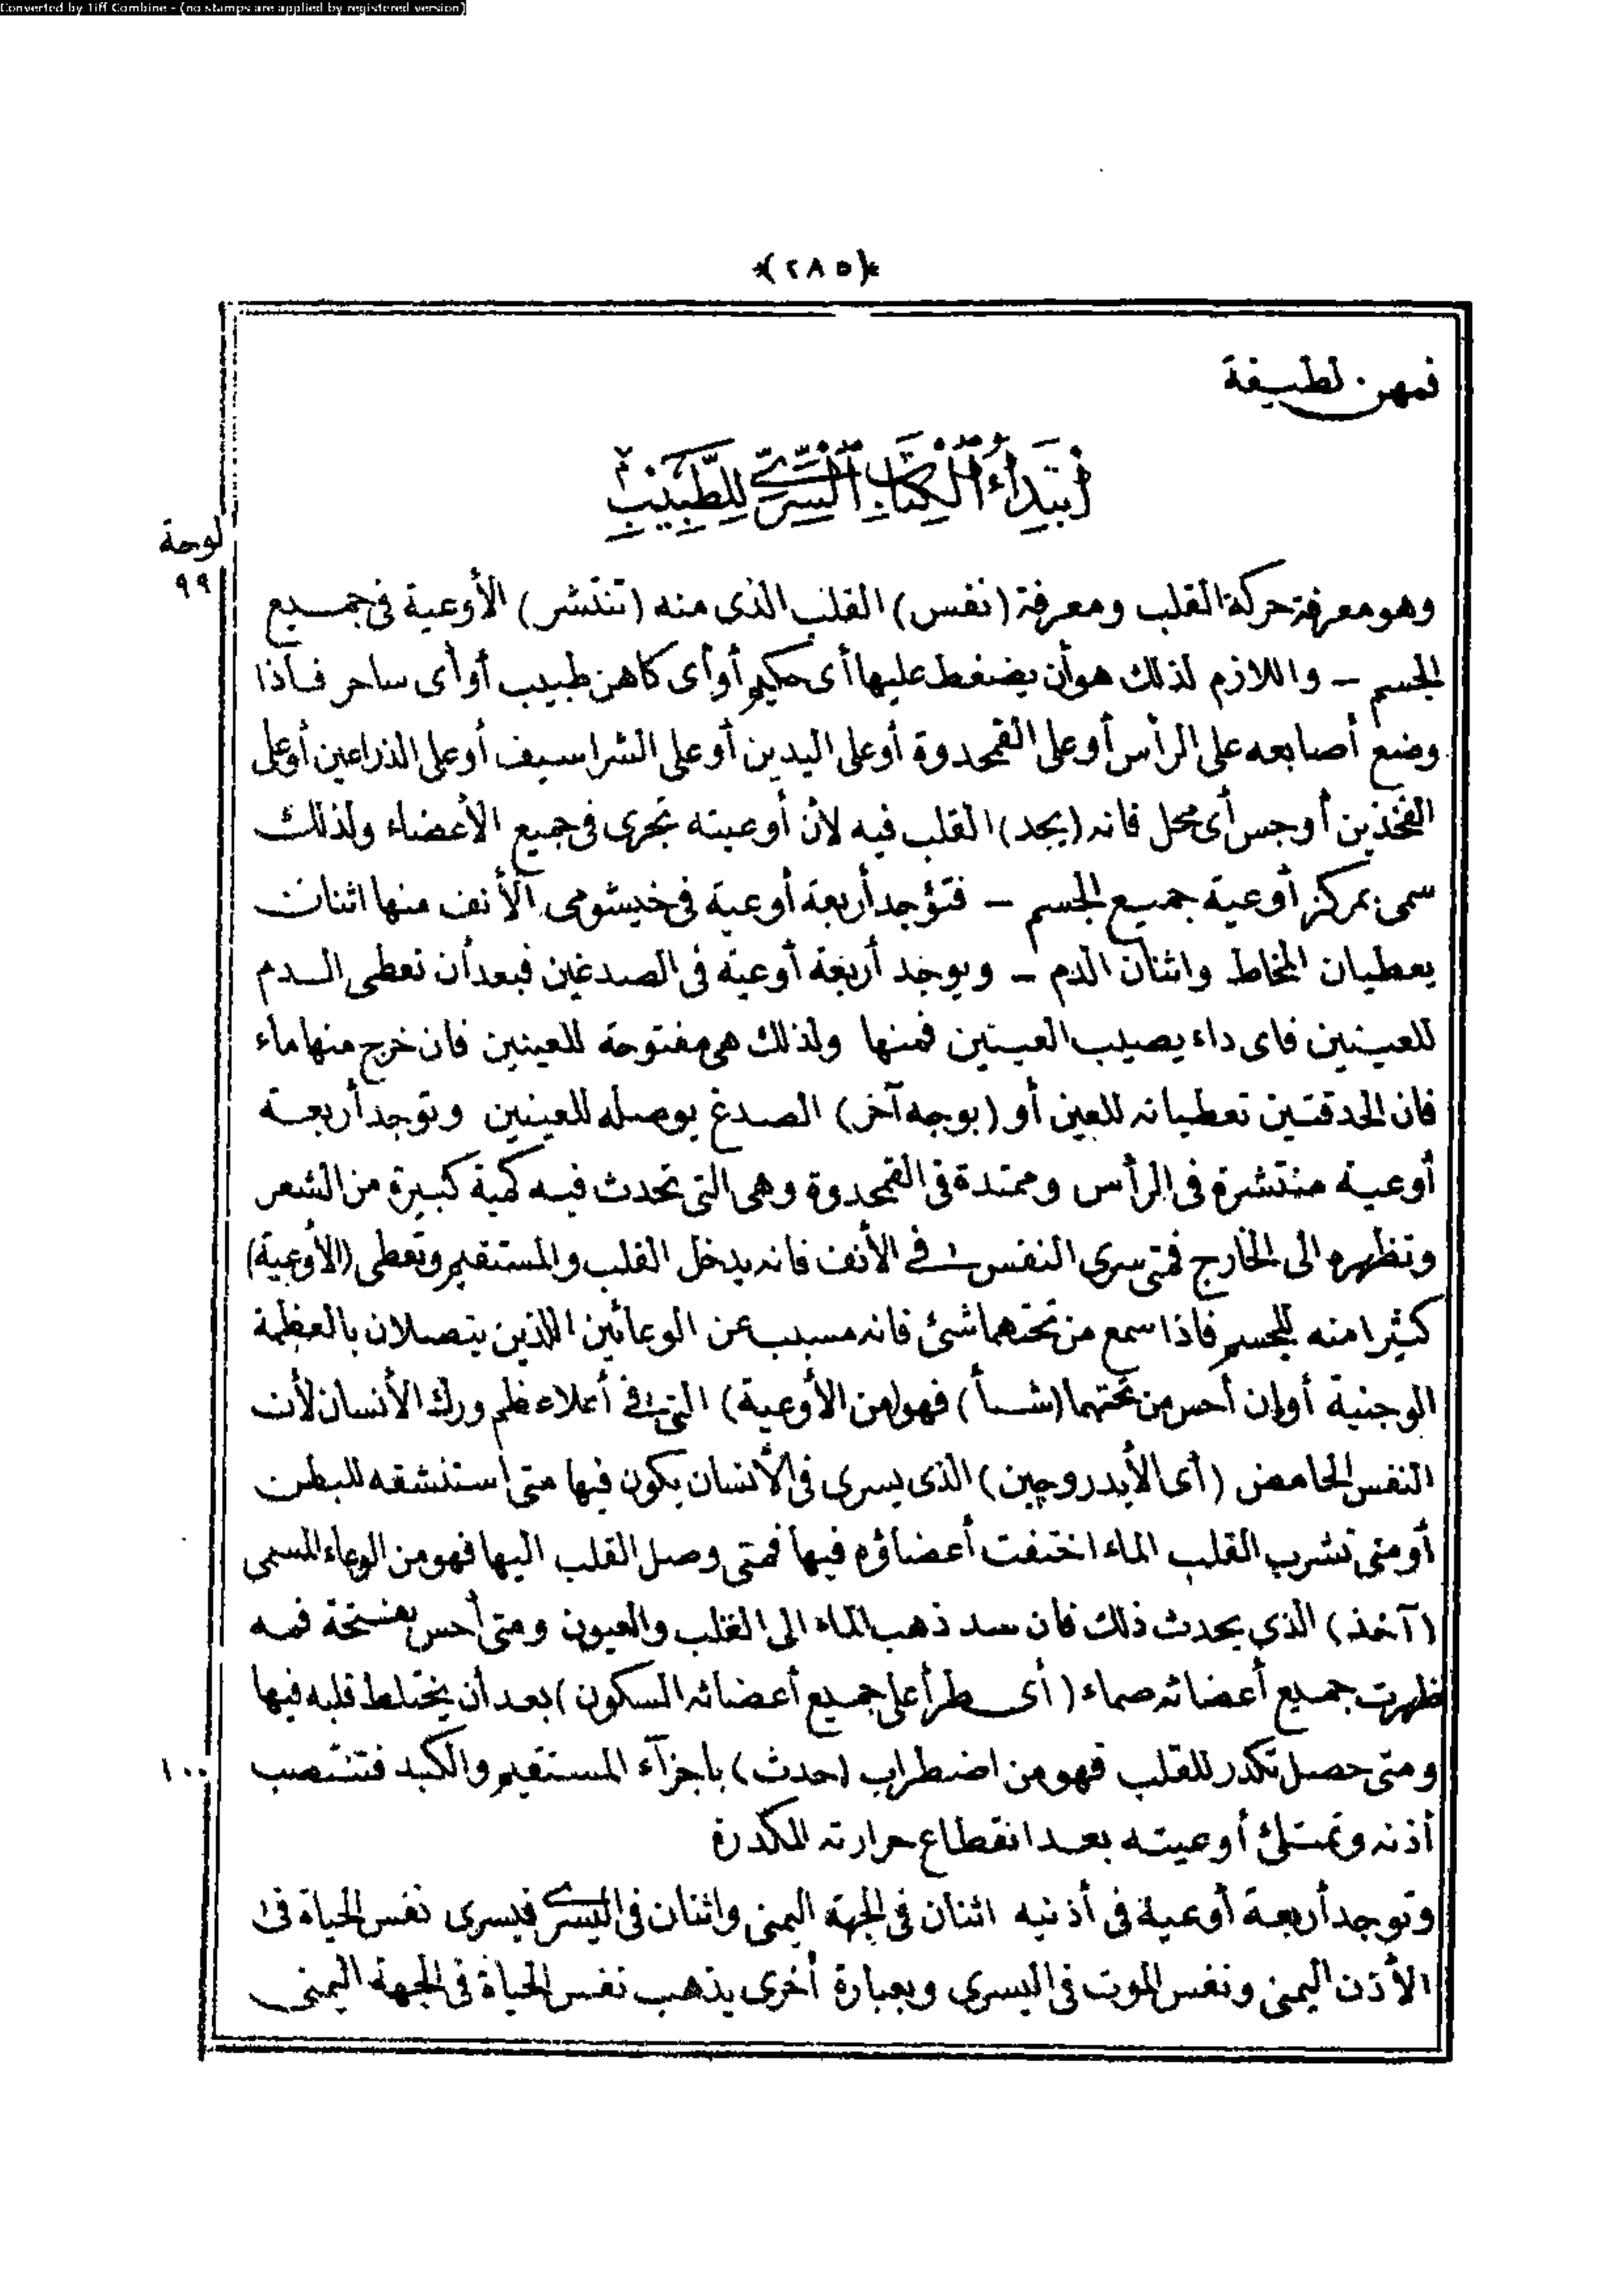 Converted by Tiff Combine - (no stamps are applied by registered version)
(٢٨٥)
فمهن لطيفة
ابتداء الكتاب السري للطبيب
لوحة
٩٩
وهو معرفة حركة القلب ومعرفة (نفس) القلب الذى منه (تنتشر) الأوعية فى جميع
الجسم - واللازم لذلك هو أن يضغط عليها أى حكيم أو أى كاهن طبيب أو أى ساحر فاذا
وضع أصابعه على الرأس أو على القمحدوة أو على اليدين أو على الشراسيف أو على الذراعين أو على
الفخذين أو جس أى محل فانه (يجد) القلب فيه لأن أوعيته تجرى فى جميع الأعضاء ولذلك
سمى بمركز أوعية جميع الجسم - فتوجد أربعة أوعية فى خيشومى الأنف منها اثنان
يعطيان المخاط واثنان الدم - ويوجد أربعة أوعية فى الصدغين فبعد أن تعطى الدم
للعينين فاى داء يصيب العينين فمنها ولذلك هى مفتوحة للعينين فان خرج منها ماء
فان الحدقتين تعطيانه للعين أو (بوجه آخر) الصدغ يوصله للعينين وتوجد أربعة
أوعية منتشرة فى الرأس وممتدة فى القمحدوة وهى التى تحدث فيه كمية كبيرة من الشعر
وتظهره الى الخارج فمتى سرى النفس فى الأنف فانه يدخل القلب والمستقيم وتعطى (الأوعية)
كثيرا منه للجسم فاذا سمع من تحتهما شئ فانه مسبب عن الوعائين اللذين يتصلان بالعظمة
الوجنية أو إن أحس من تحتهما (شيأ) فهو (من الأوعية) التى فى أعلاء عظم ورك الأنسان لأن
النفس الحامض (أى الأيدروجين) الذى يسرى فى الأنسان يكون فيها متى استنشقه للبطن
أو متى تشرب القلب الماء اختفت أعضاؤه فيها فمتى وصل القلب اليها فهو من الوعاء المسمى
(آخذ) الذى يحدث ذلك فان سد ذهب الماء الى القلب والعيون ومتى أحس بفتحة فمه
ظهرت جميع أعضائه صماء (أى طرأ على جميع أعضائه السكون) بعد أن يختلط قلبه فيها
ومتى حصل تكدر للقلب فهو من اضطراب (حدث) باجزآء المستقيم والكبد فتنتصب
١٠٠
أذنه وتمتلئ أوعيته بعد انقطاع حرارته المكدرة
وتوجد أربعة أوعية فى أذنيه اثنان فى الجهة اليمنى واثنان فى اليسرى فيسرى نفس الحياة فى
الأذن اليمنى ونفس الموت فى اليسرى وبعبارة أخرى يذهب نفس الحياة فى الجهة اليمنى